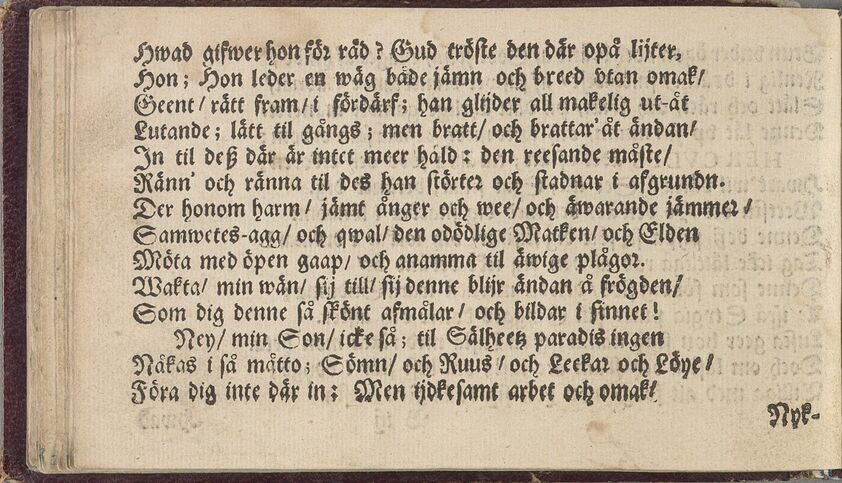 Hwad gifwer hon för råd? Gud tröste den där opå lijter,
Hon; Hon leder en wäg både jämn och breed vtan omak/
Geent/ rätt fram/ i fördärf; han glijder all makelig ut-åt
Lutande; lätt til gångs; men bratt/ och brattar' åt ändan/
In til deß där är intet meer hald: den reesande måste/
Ränn' och ränna til des han störter och stadnar i afgrundn.
Der honom harm/ jämt ånger och wee/ och äwarande jämmer/
Samwetes-agg/ och qwal/ den odödlige Matken/ och Elden
Möta med öpen gaap/ och anamma til äwige plågor.
Wakta/ min wän/ sij till/ sij denne blijr ändan å frögden/
Som dig denne så skönt afmålar/ och bildar i sinnet!
Ney/ min Son/ icke så; til Sälheetz paradis ingen
Nåkas i så måtto; Sömn/ och Ruus/ och Leekar och Löye/
Föra dig inte där in: Men tjdkesamt arbet och omak/
Nyk-